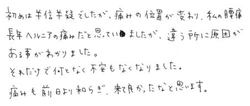 初めは半信半疑でしたが、痛みの位置が変わり、私の腰痛
長年ヘルニアの痛みだと思っていましたが、違う所に原因が
ある事がわかりました。
それだけで何となく不安もなくなりました。
痛みも前日より和らぎ、来て良かったなと思います。